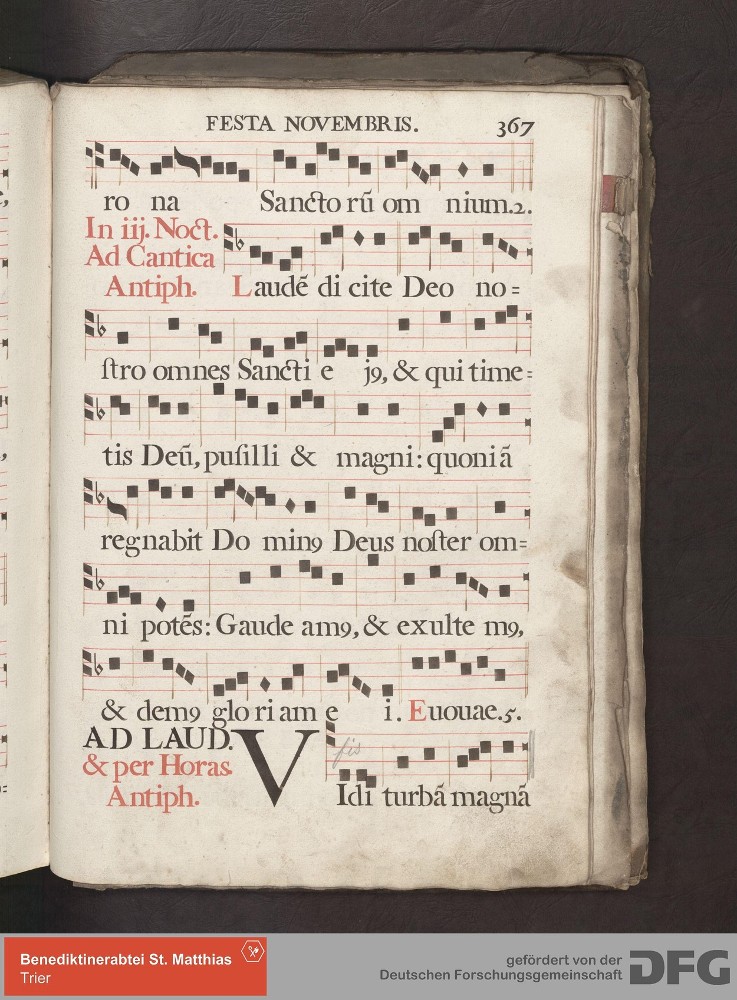 FESTA NOVEMBRIS. 367
ro na Sancto rũ om nium.2.
In iij. Noct.
Ad Cantica
Antiph. Laudẽ di cite Deo no=
ſtro omnes Sancti e jꝯ, & qui time=
tis Deũ, puſilli & magni: quoniã
regnabit Do minꝯ Deus noſter om=
ni potẽs: Gaude amꝯ, & exulte mꝯ,
& demꝯ glo ri am e i. Euouae.5.
AD LAUD.
& per Horas.
Antiph. VIdi turbã magnã
fis
Benediktinerabtei St. Matthias
Trier
gefördert von der
Deutschen Forschungsgemeinschaft
DFG